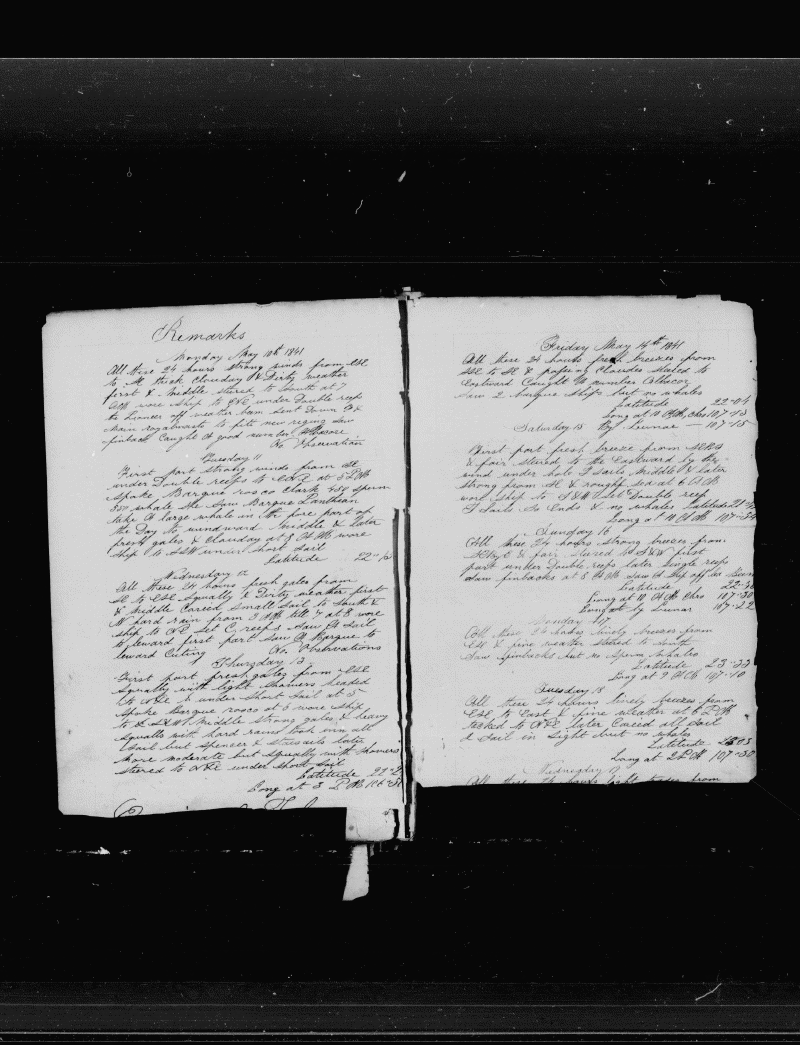 Remarks
Monday May 10th 1841
All these 24 hours strong winds from ESE
to thick Cloudy & Dirty weather
first & Middle stered to South at 7
wore ship to ENE under Double reefs
off weather sent Down
main to fitt new reging saw
finback Caught A good number
No Observation
Tuesday 11
First part strong winds from SE
under Double reefs to ENE at 5 PM
Spoke Barque rosco Clark 450 sperm
350 whale the Saw Barque Panthean
take A large whale in the fore part of
the Day to windward Middle & later
fresh gales & Cloudy at 3 AM wore
ship to SSW under short sail
Latitude 22
Wednesday 12
All these 24 hours fresh gales from
SE to ESE Squally & Dirty weather first
& Middle Caried Small Sail to South &
W hard rain from 3 AM till 7 at 8 wore
ship to NE set C reefs Saw A Sail
to leward first part Saw A Barque to
leward Cuting No. Observations
Thursday 13
First part fresh gales from ESE
Squally with light showers headed
to NNE & under short sail at 5
Spoke Barque rosco at 6 wore ship
to S SW Middle strong gales & heavy
Squalls with hard rains took in all
Sail but Spencer & staisails later
more moderate but Squally with showers
stered to NNE under Short Sail
Latitude 22
Long at 3 PM 106
Friday May 14th 1841
All these 24 hours fresh breezes from
SSE to SE & pasing Cloudes Stered to
Eastward Caught A number Albacor
Saw 2 Barque Ships but no whales
Latitude 22-04
Long at 10 AM Chro 107-13
Saturday 15 By Lunar — 107-15
First part fresh breeze from
& fair Stered to the Eastward by the
wind under hole T Sails Middle & later
strong from SE & rough sea at 6 AM
wore ship to SSW set Double reef
T Sails So Ends & no whales Latitude
Long at 10 AM 107
Sunday 16
All these 24 hours strong breezes from
& fair Stered to SSW first
part under Double reefs later Single reefs
Saw finbacks at 8 AM Saw A Ship off
Latitude 22
Long at 10 AM Chro 107-30
Longat by Lunar 107-22
Monday 17
All these 24 hours lively breezes from
ESE & fine weather stered to South
Saw finbacks but no Sperm whales
Latitude 23-22
Long at 9 AM 107-10
Tuesday 18
All these 24 hours lively breezes from
ESE to East & fine weather at 6 PM
tacked to NNE later Caried all Sail
A Sail in Sight but no whales
Latitude
Long at 2 PM 107-30
Wednesday 19
All these 24 hours light from